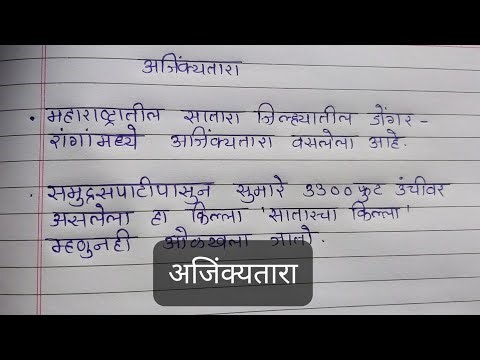 अजिंक्यतारा
• महाराष्ट्रातील सातारा जिल्ह्यातील डोंगर-
रांगांमध्ये अजिंक्यतारा वसलेला आहे.
• समुद्रसपाटीपासून सुमारे ३३०० फुट उंचीवर
असलेला हा किल्ला 'सातारचा किल्ला'
म्हणुनही ओळखला जातो.
अजिंक्यतारा